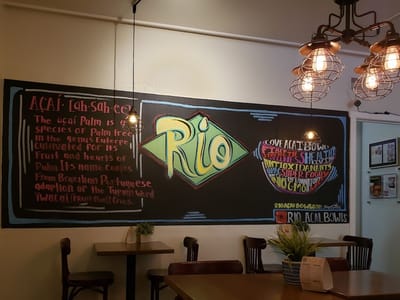 AÇAÍ · [ah-sah-ee]
The açaí Palm is a
species of Palm tree
in the genus Euterpe
cultivated for its
fruit and hearts of
Palm. Its name comes
From Brazilian Portuguese
adaption of the Tupian word
Rio
LOVE ACAI BOWL
HEALTH
ANTIOXIDANTS
SUPER FOOD
NO GMO
RIO ACAI BOWLS